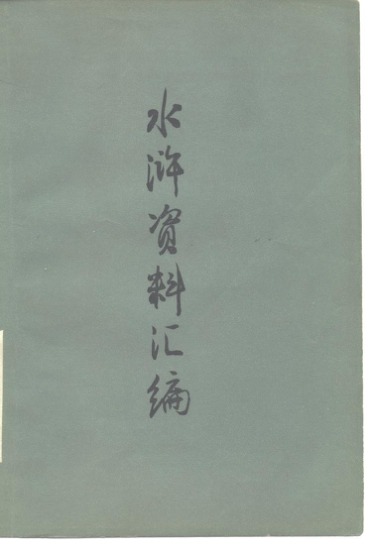 水浒资料汇编